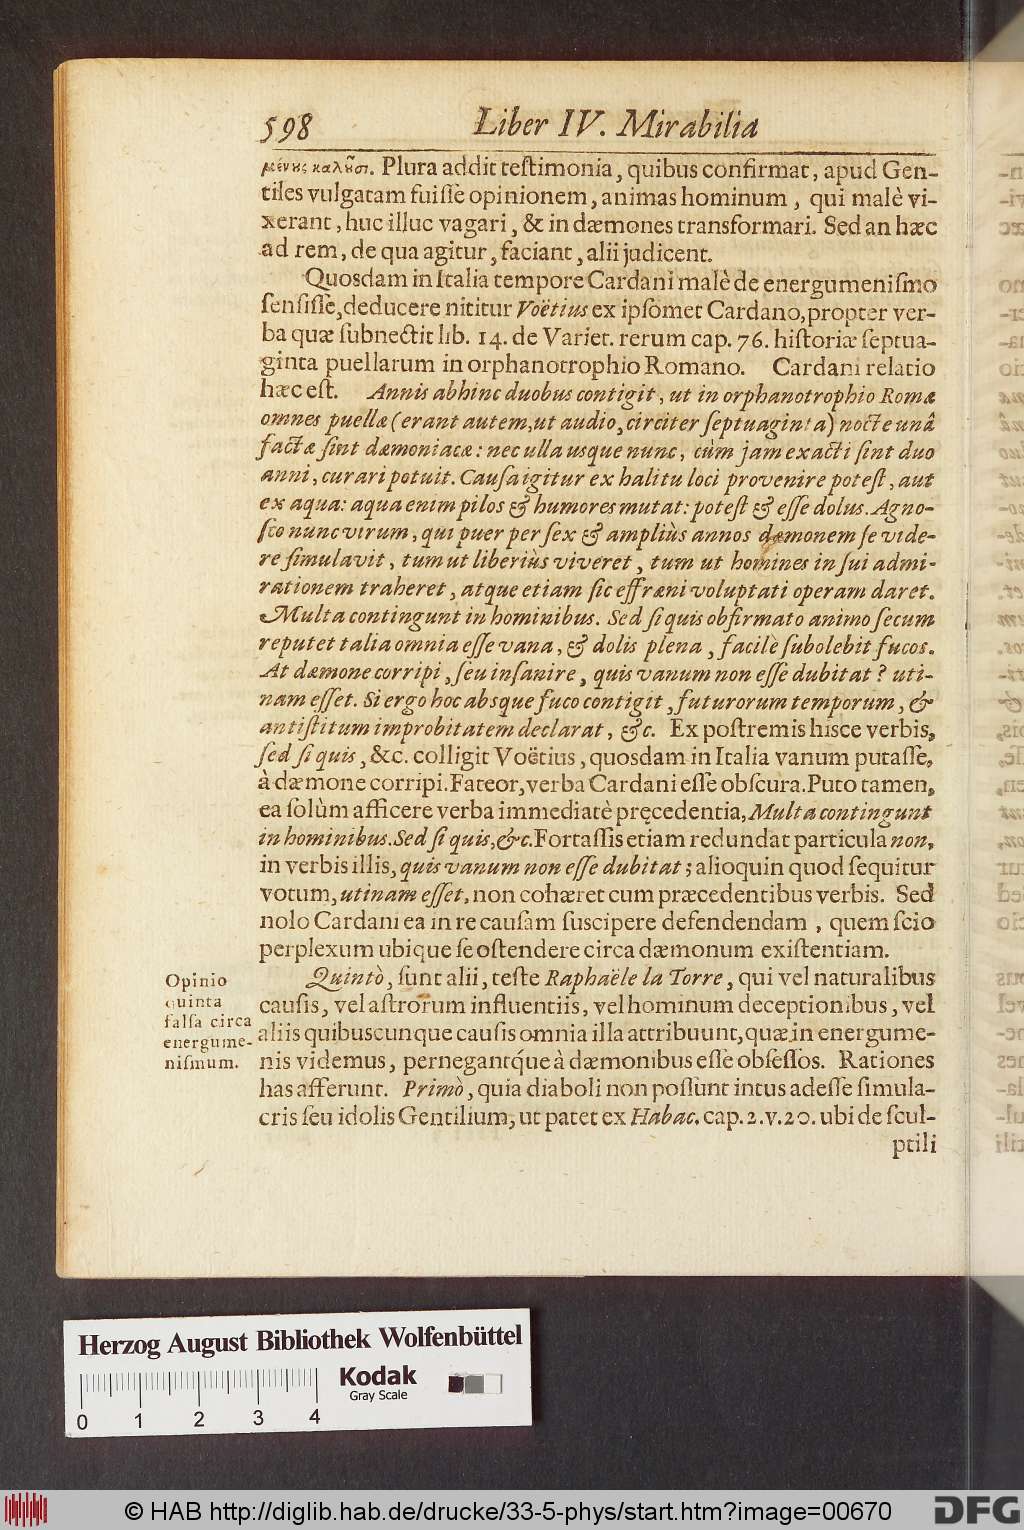 598 Liber IV. Mirabilia
μένους καλοῦσι. Plura addit teſtimonia, quibus confirmat, apud Gen-
tiles vulgatam fuiſſe opinionem, animas hominum, qui malè vi-
xerant, huc illuc vagari, & in dæmones transformari. Sed an hæc
ad rem, de qua agitur, faciant, alii judicent.
Quosdam in Italia tempore Cardani malè de energumeniſmo
ſenſiſſe, deducere nititur Voëtius ex ipſomet Cardano, propter ver-
ba quæ ſubnectit lib. 14. de Variet. rerum cap. 76. hiſtoriæ ſeptua-
ginta puellarum in orphanotrophio Romano. Cardani relatio
hæc eſt. Annis abhinc duobus contigit, ut in orphanotrophio Romæ
omnes puellæ (erant autem, ut audio, circiter ſeptuaginta) nocte unâ
factæ ſint dæmoniacæ: nec ulla usque nunc, cùm jam exacti ſint duo
anni, curari potuit. Cauſa igitur ex halitu loci provenire poteſt, aut
ex aqua: aqua enim pilos & humores mutat: poteſt & eſſe dolus. Agno-
ſco nunc virum, qui puer per ſex & ampliùs annos dæmonem ſe vide-
re ſimulavit, tum ut liberiùs viveret, tum ut homines in ſui admi-
rationem traheret, atque etiam ſic effræni voluptati operam daret.
Multa contingunt in hominibus. Sed ſi quis obfirmato animo ſecum
reputet talia omnia eſſe vana, & dolis plena, facilè ſubolebit fucos.
At dæmone corripi, ſeu inſanire, quis vanum non eſſe dubitat? uti-
nam eſſet. Si ergo hoc absque fuco contigit, futurorum temporum, &
antiſtitum improbitatem declarat, &c. Ex poſtremis hisce verbis,
ſed ſi quis, &c. colligit Voëtius, quosdam in Italia vanum putaſſe,
à dæmone corripi. Fateor, verba Cardani eſſe obſcura. Puto tamen,
ea ſolùm afficere verba immediatè pręcedentia, Multa contingunt
in hominibus. Sed ſi quis, &c. Fortaſſis etiam redundat particula non,
in verbis illis, quis vanum non eſſe dubitat; alioquin quod ſequitur
votum, utinam eſſet, non cohæret cum præcedentibus verbis. Sed
nolo Cardani ea in re cauſam ſuscipere defendendam, quem ſcio
perplexum ubique ſe oſtendere circa dæmonum exiſtentiam.
Opinio
quinta
falſa circa
energume-
niſmum.
Quintò, ſunt alii, teſte Raphaële la Torre, qui vel naturalibus
cauſis, vel aſtrorum influentiis, vel hominum deceptionibus, vel
aliis quibuscunque cauſis omnia illa attribuunt, quæ in energume-
nis videmus, pernegantq́ue à dæmonibus eſſe obſeſſos. Rationes
has afferunt. Primò, quia diaboli non poſſunt intus adeſſe ſimula-
cris ſeu idolis Gentilium, ut patet ex Habac. cap. 2. v. 20. ubi de ſcul-
ptili
Herzog August Bibliothek Wolfenbüttel
Kodak
Gray Scale
0 1 2 3 4
© HAB http://diglib.hab.de/drucke/33-5-phys/start.htm?image=00670
DFG